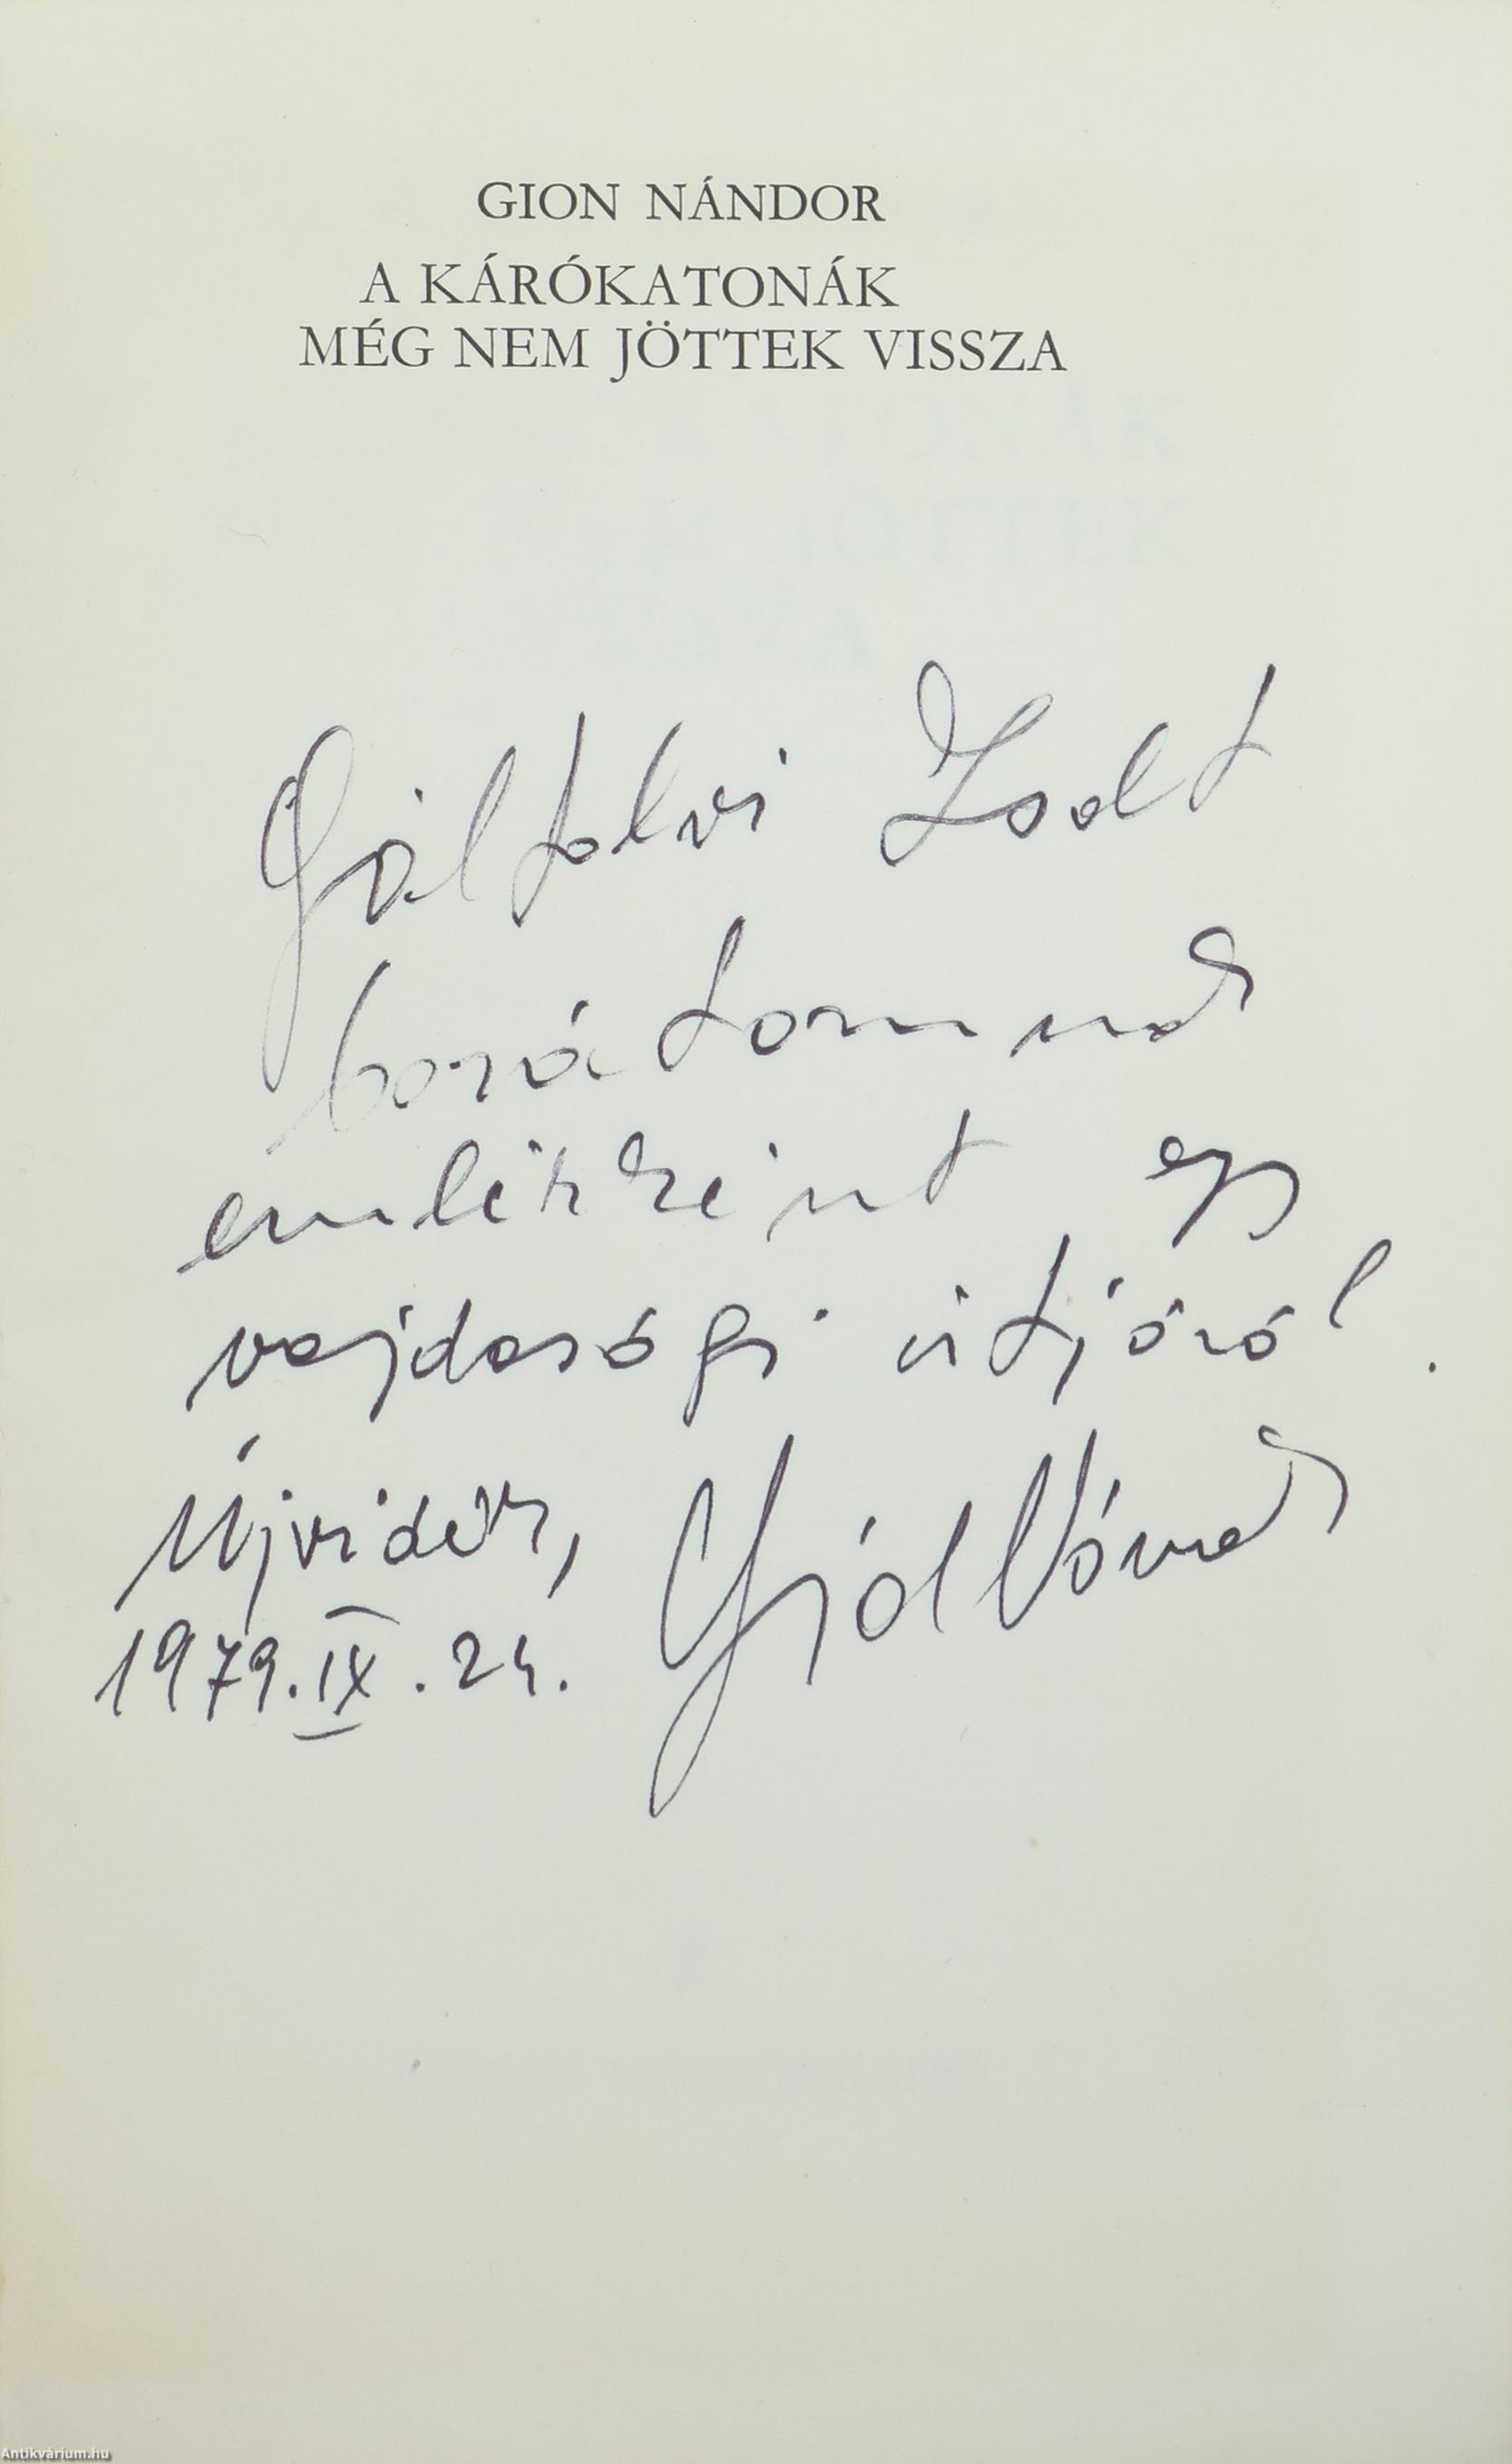 GION NÁNDOR
A KÁRÓKATONÁK
MÉG NEM JÖTTEK VISSZA
Gálfalvi Zsolt
barátomnak
emlékként egy
vajdasági útjáról.
Újvidék,
1979. IX. 24.
Antikvárium.hu